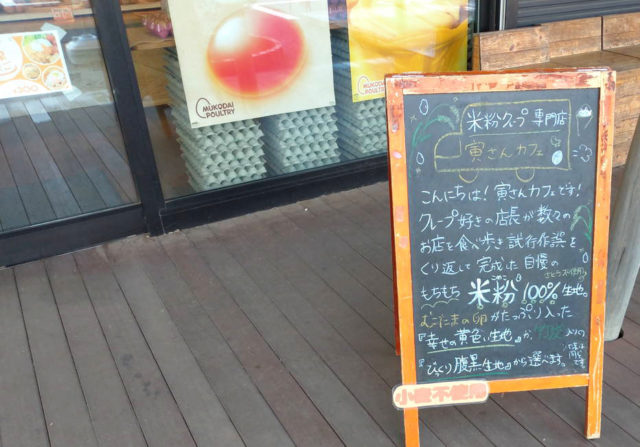 MUKODAI
POULTRY
MUKODAI
POULTRY
米粉クレープ専門店
寅さんカフェ
こんにちは!寅さんカフェです!
クレープ好きの店長が数々の
お店を食べ歩き試行作誤を
くり返して完成した自慢の
もちもち 米粉 100%生地。
こめこ
さとう不使用
むこだいの卵がたっぷり入った
『幸せの黄色い生地』か、竹炭入りの
『びっくり腹黒生地』から選べます。
味は
同じ
です
小麦不使用